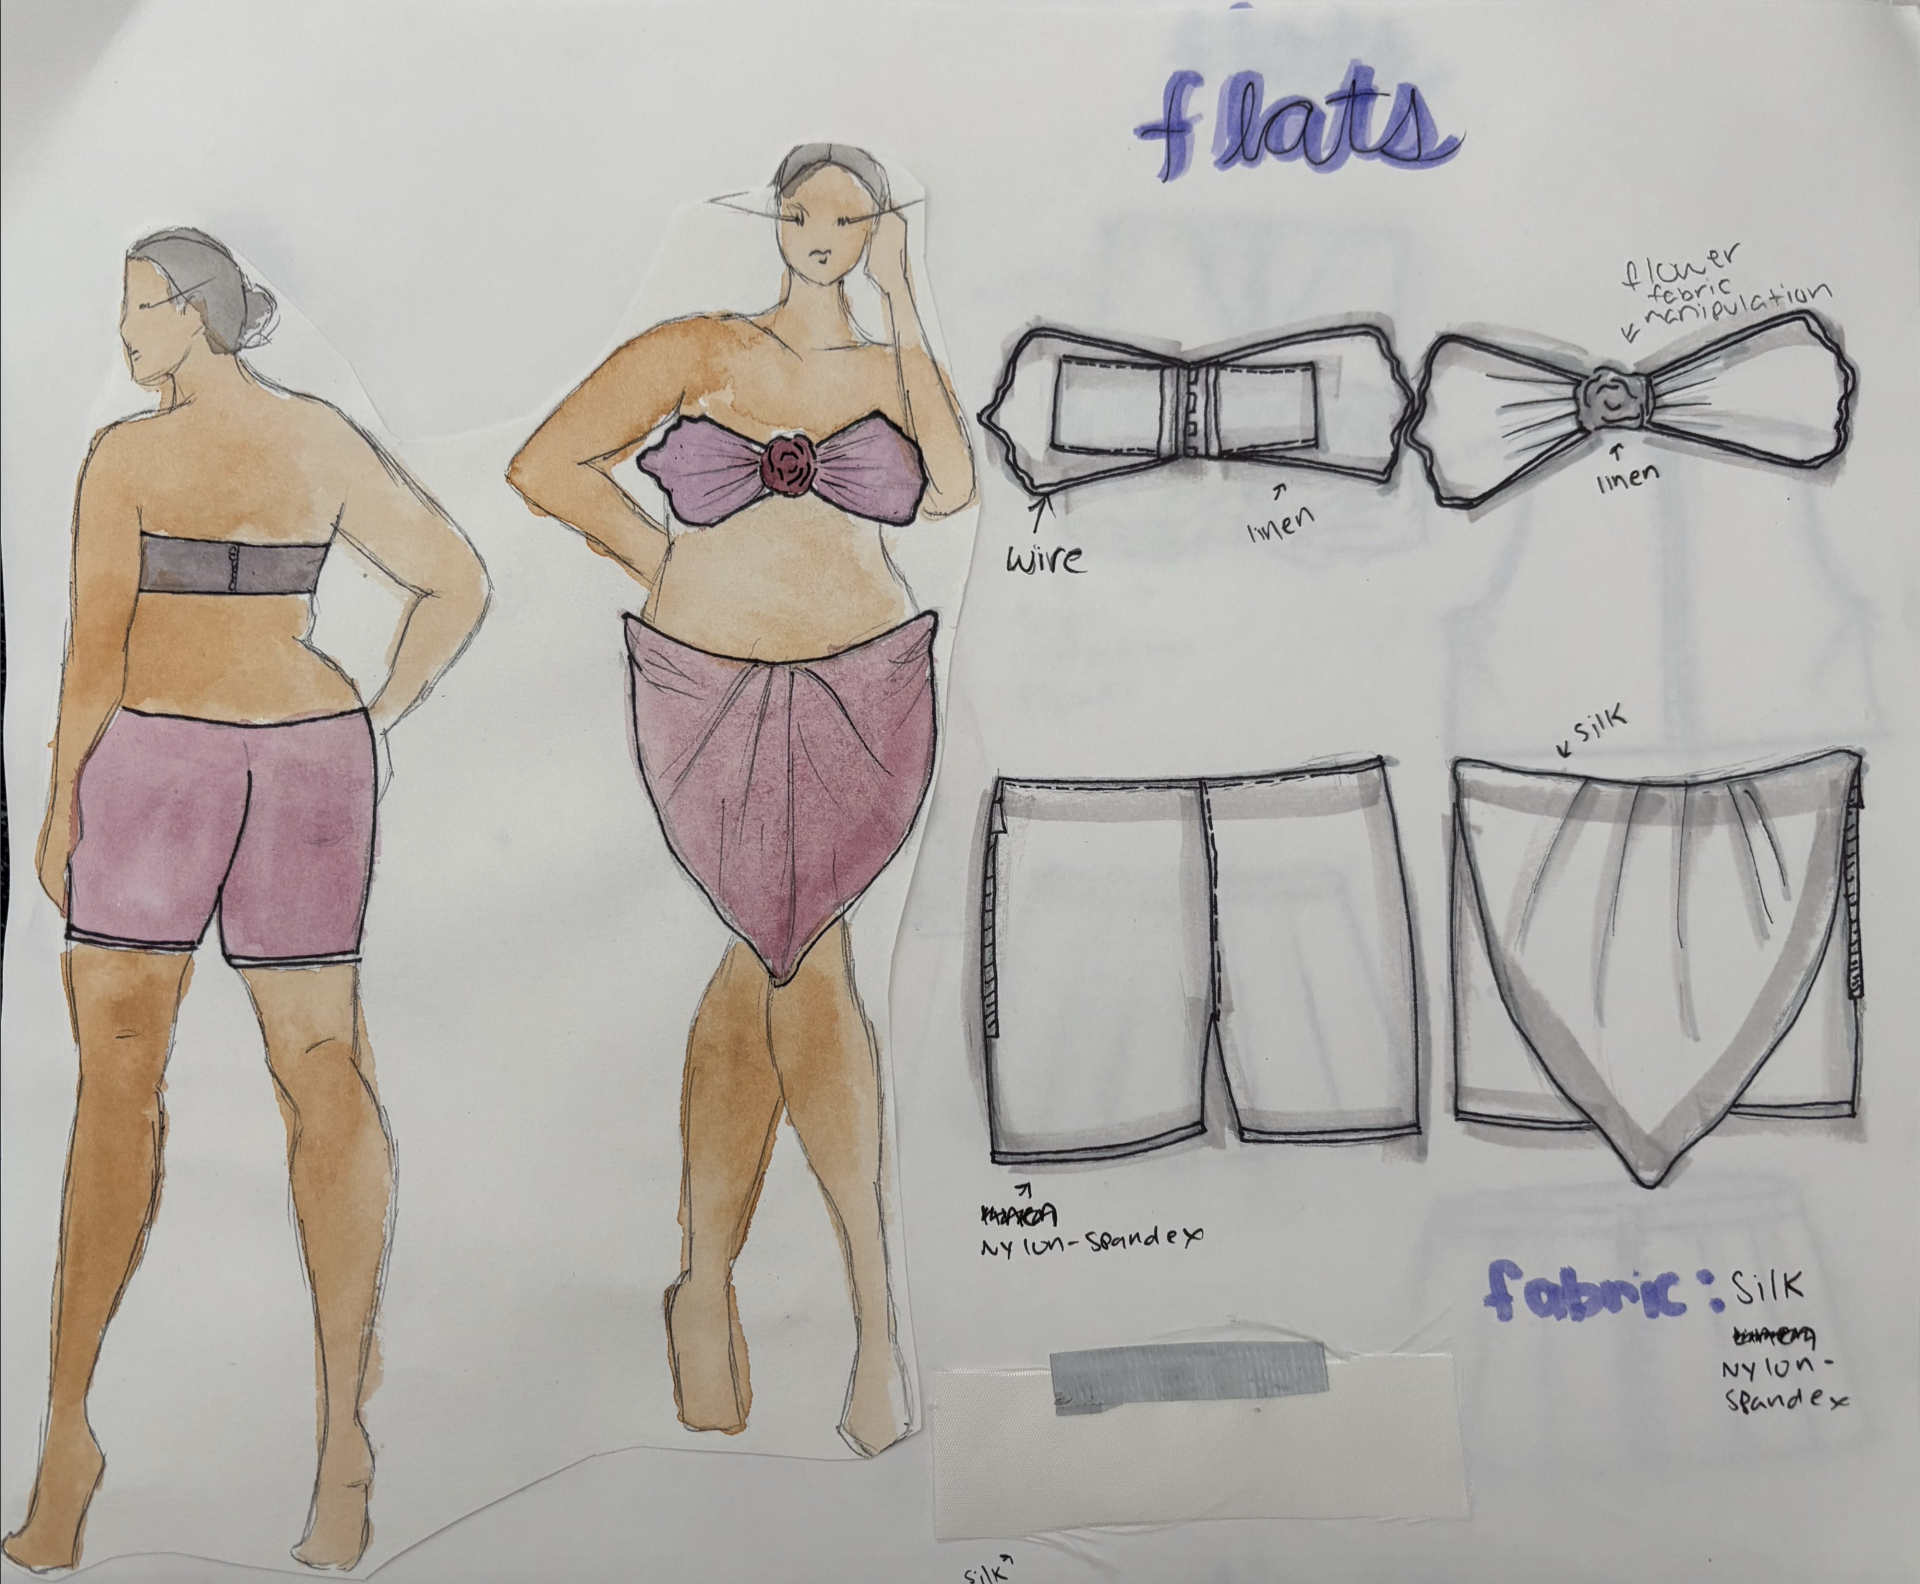 flats
flower
fabric
manipulation
wire
linen
linen
silk
Nylon-Spandex
fabric: Silk
Nylon-
Spandex
silk